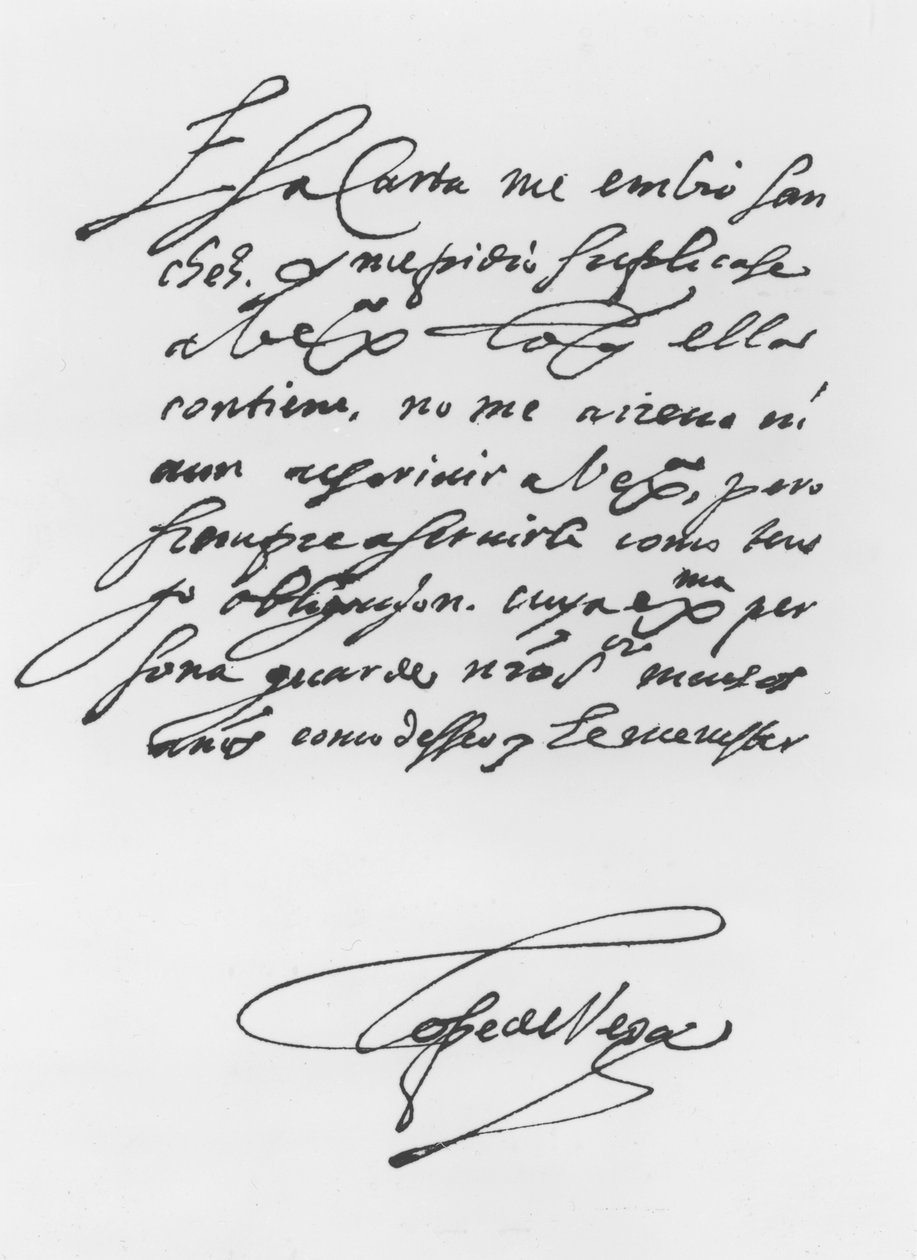 Esta Carta me embio San
chez. y me pidio suplicase
a V ex.ª lo q ella
contiene, no me atreuo ni
aun a escriuir a V ex.ª, pero
siempre a seruirle como ten
go obligaçion. cuya ex.ma per
sona guarde nro s.or muchos
años como desseo y he menester
Lope de Vega